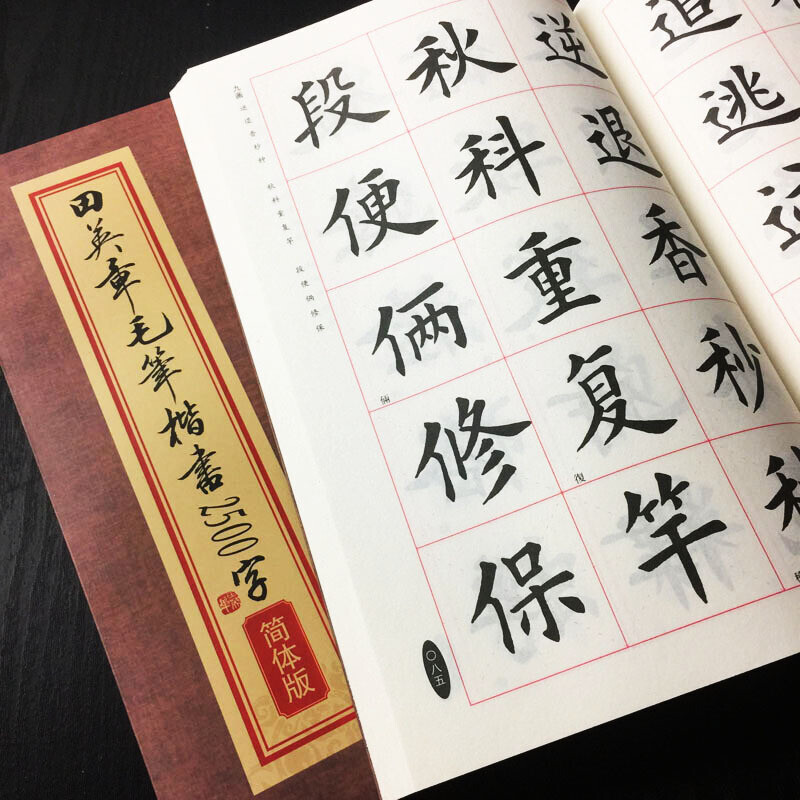 田英章毛筆楷書2500字
简体版
九画 逆退香秒种 秋科重复竿 段便俩修保
追逃
逆退香秒
秋科重复竿
復
段便俩修保
倆
〇八五